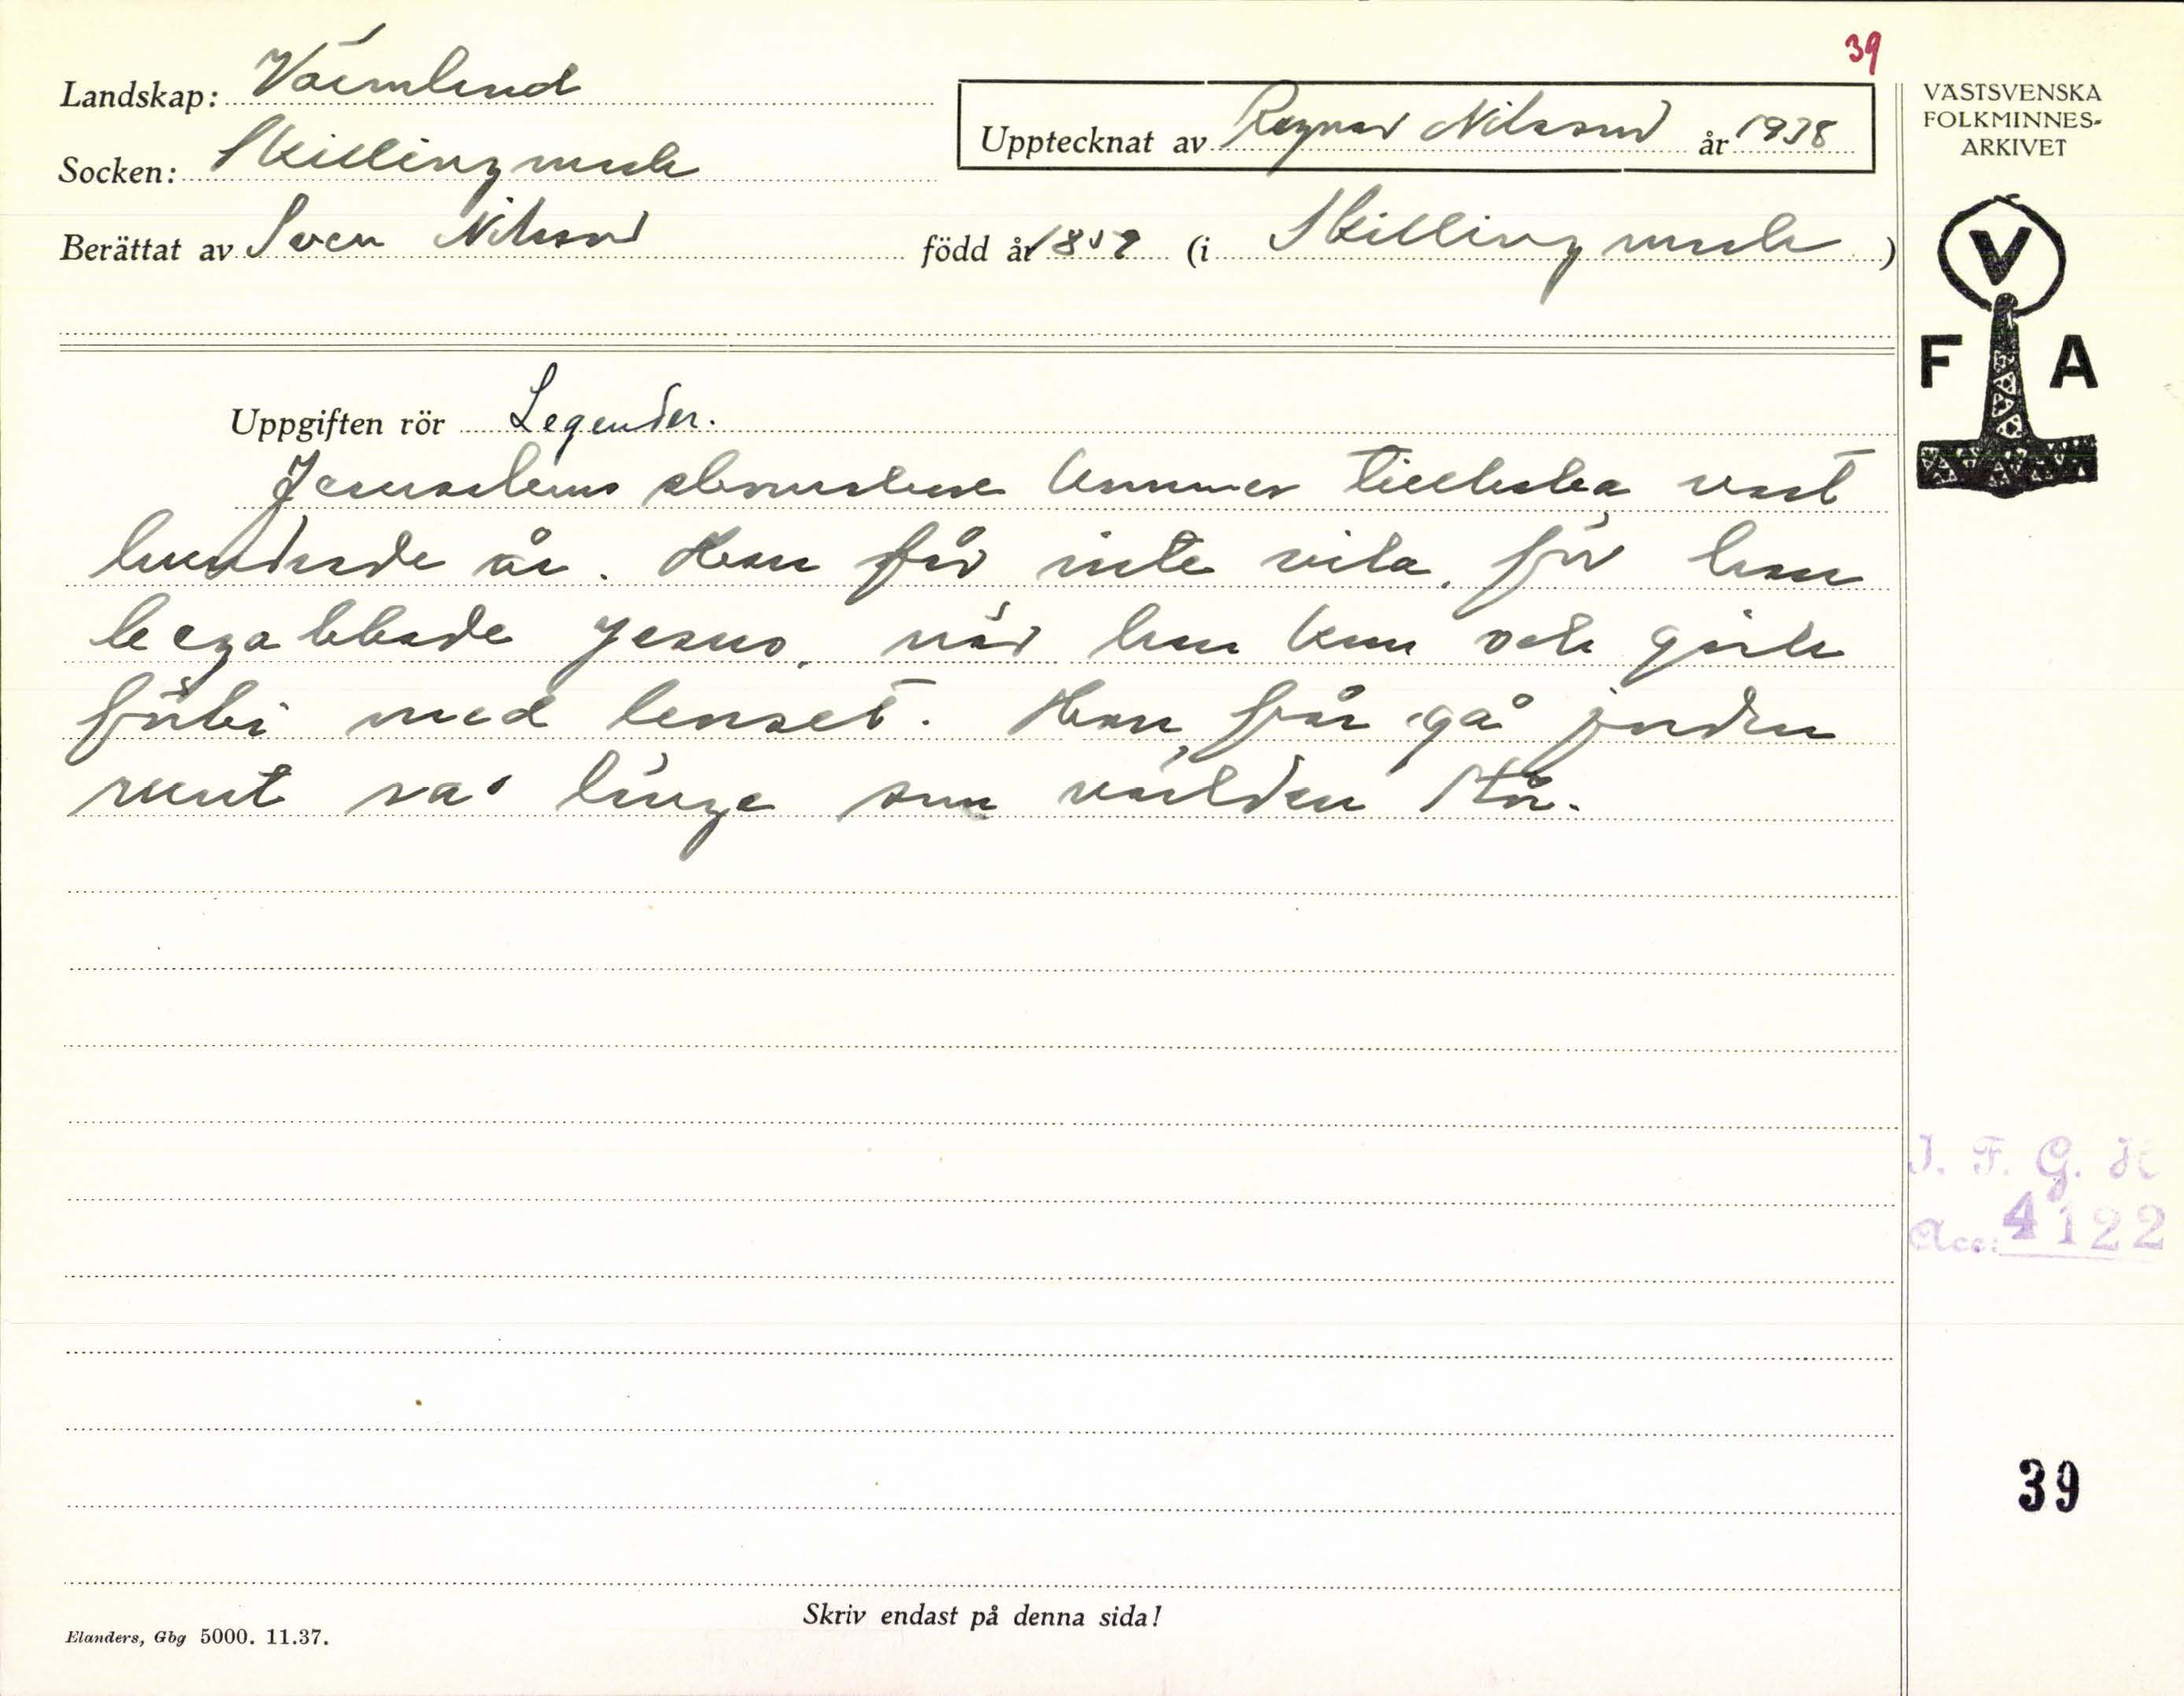 39
Landskap: Värmland
Upptecknat av Ragnar Nilsson år 1938
VÄSTSVENSKA
FOLKMINNES-
ARKIVET
Socken: Skillingmark
Berättat av Sven Nilsson född år 1859 (i Skillingmark)
V
F A
Uppgiften rör Legender.
Jerusalems skomakare kommer tillbaka vart
hundrade år. Han får inte vila, för han
begabbade Jesus, när han kom och gick
förbi med korset. Han får gå jorden
runt så länge som världen står.
I. F. G. H
Acc: 4122
39
Skriv endast på denna sida!
Elanders, Gbg 5000. 11.37.